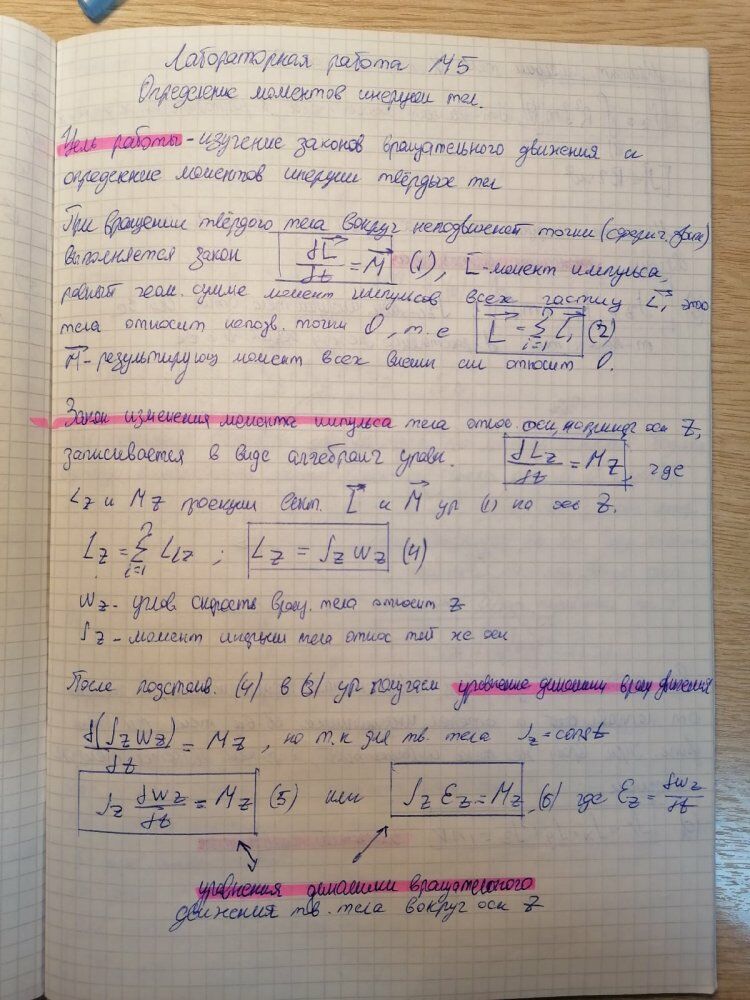 Лабораторная работа М5
Определение моментов инерции тел.
Цель работы - изучение законов вращательного движения и
определение моментов инерции твёрдых тел
При вращении твёрдого тела вокруг неподвижной точки (сферич. движ)
выполняется закон dL⃗/dt = M⃗ (1), L⃗ - момент импульса,
равный геом. сумме момент импульсов всех частиц L⃗i этого
тела относит неподв. точки O, т.е L⃗ = ∑ⁿᵢ₌₁ L⃗i (2)
M⃗ - результирующ момент всех внешн сил относит O.
Закон изменения момента импульса тела относ. оси, например оси Z,
записывается в виде алгебраич уравн. dLz/dt = Mz, где
Lz и Mz проекции вект. L⃗ и M⃗ ур (1) на ось Z.
Lz = ∑ⁿᵢ₌₁ Liz ; Lz = Jz ωz (4)
ωz - углов. скорость вращ. тела относит z
Jz - момент инерции тела относ той же оси
После подставив. (4) в (3) ур получаем уравнение динамики вращ движения
d(Jz ωz)/dt = Mz, но т.к для тв. тела Jz = const
Jz dωz/dt = Mz (5) или Jz εz = Mz, (6) где εz = dωz/dt
уравнения динамики вращательного
движения тв. тела вокруг оси Z